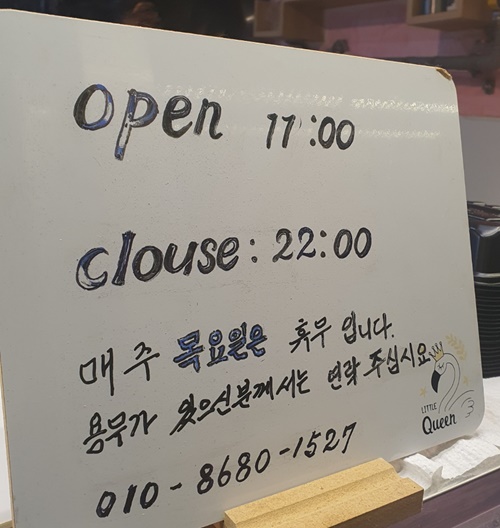 open 11:00
clouse: 22:00
매주 목요일은 휴무 입니다.
용무가 있으신분께서는 연락 주십시요
010-8680-1527
LITTLE
Queen